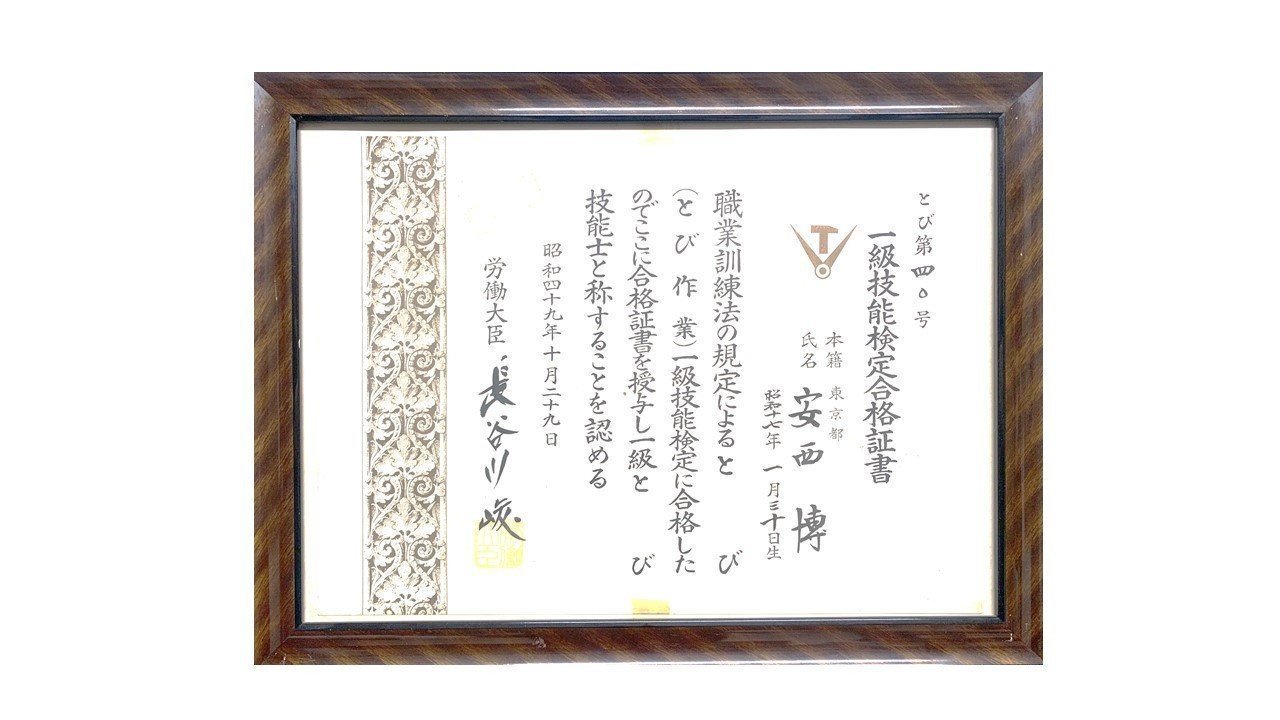 とび第四〇号
一級技能検定合格証書
本籍 東京都
氏名 安西 博
昭和十七年 一月三十日生
職業訓練法の規定によると び
(とび作業)一級技能検定に合格した
のでここに合格証書を授与し一級と び
技能士と称することを認める
昭和四十九年十月二十九日
労働大臣 長谷川 峻